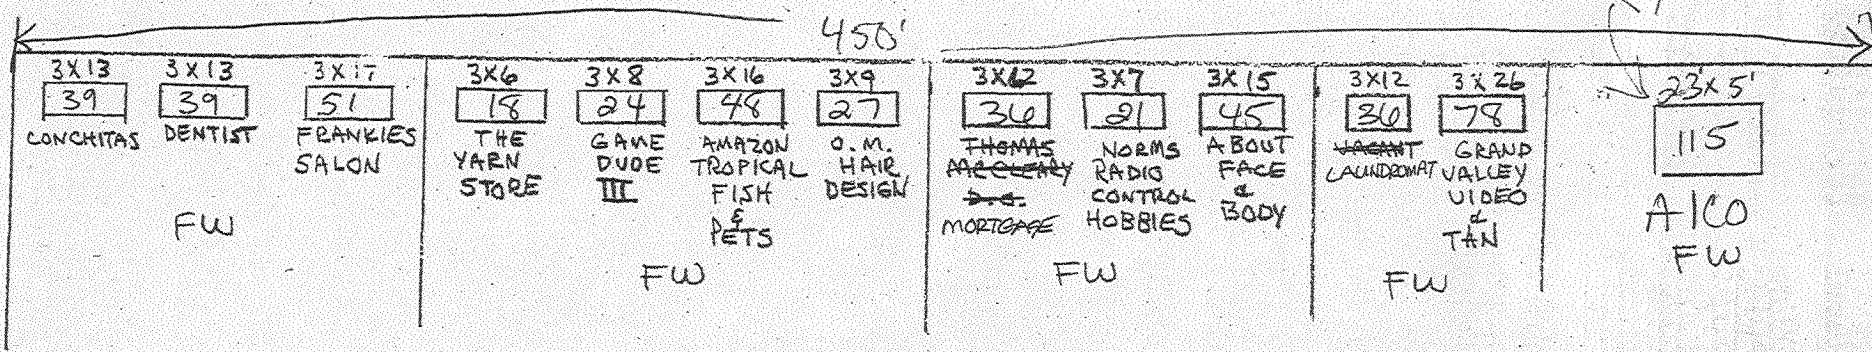 450'
3X13
39
CONCHITAS
3X13
39
DENTIST
3X17
51
FRANKIES
SALON
FW
3X6
18
THE
YARN
STORE
3X8
24
GAME
DUDE
III
3X16
48
AMAZON
TROPICAL
FISH
&
PETS
3X9
27
O.M.
HAIR
DESIGN
FW
3X12
36
THOMAS
MCCLEARY
D.C.
MORTGAGE
3X7
21
NORMS
RADIO
CONTROL
HOBBIES
3X15
45
ABOUT
FACE
&
BODY
FW
3X12
36
VACANT
LAUNDROMAT
3X26
78
GRAND
VALLEY
VIDEO
&
TAN
FW
23'x5'
115
AlCO
FW